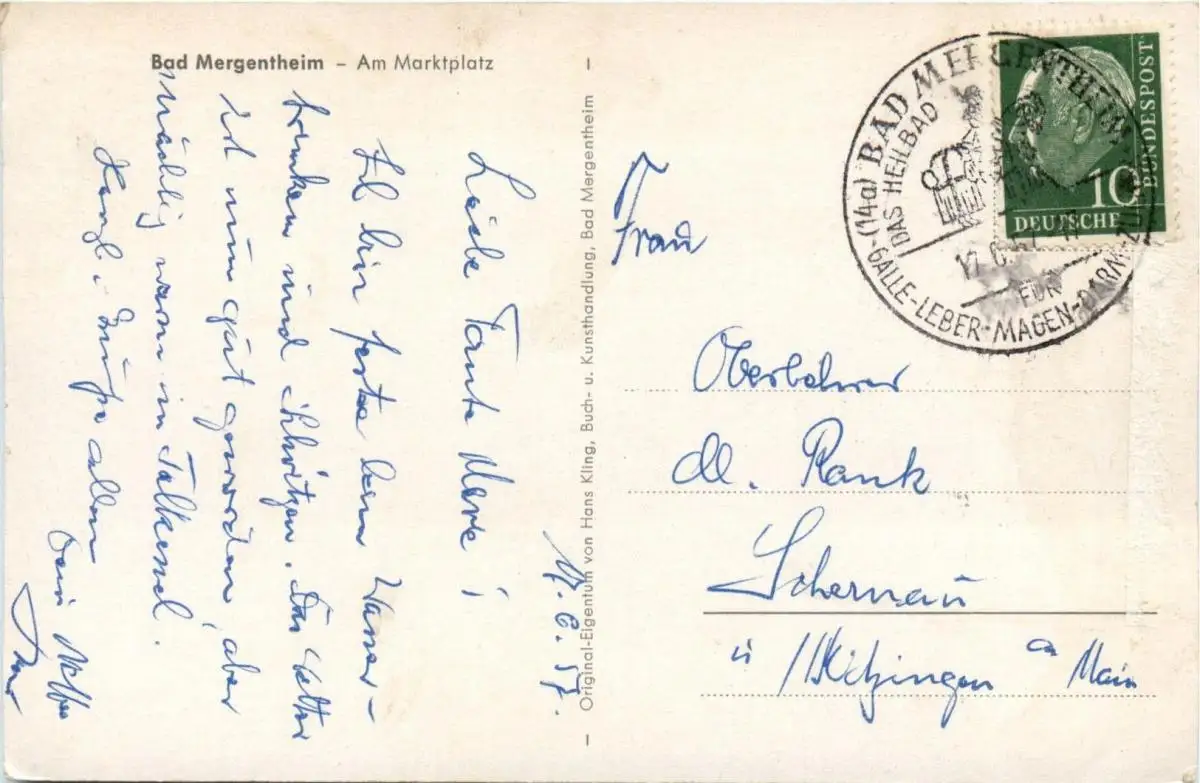 Bad Mergentheim – Am Marktplatz
17. 6. 57.
Liebe Tante
Ich bin feste beim Wasser-
trinken und schwitzen. Das Wetter
ist nun gut geworden, aber
mächtig warm im Talkessel.
Herzl. Grüße allen
Dein Neffe
Original-Eigentum von Hans Kling, Buch- u. Kunsthandlung, Bad Mergentheim
(14a) BAD MERGENTHEIM
DAS HEILBAD
FÜR
GALLE-LEBER-MAGEN-DARM-ZU
10
DEUTSCHE
BUNDESPOST
Frau
Oberlehrer
M. Rank
Schernau
ü/Kitzingen a Main